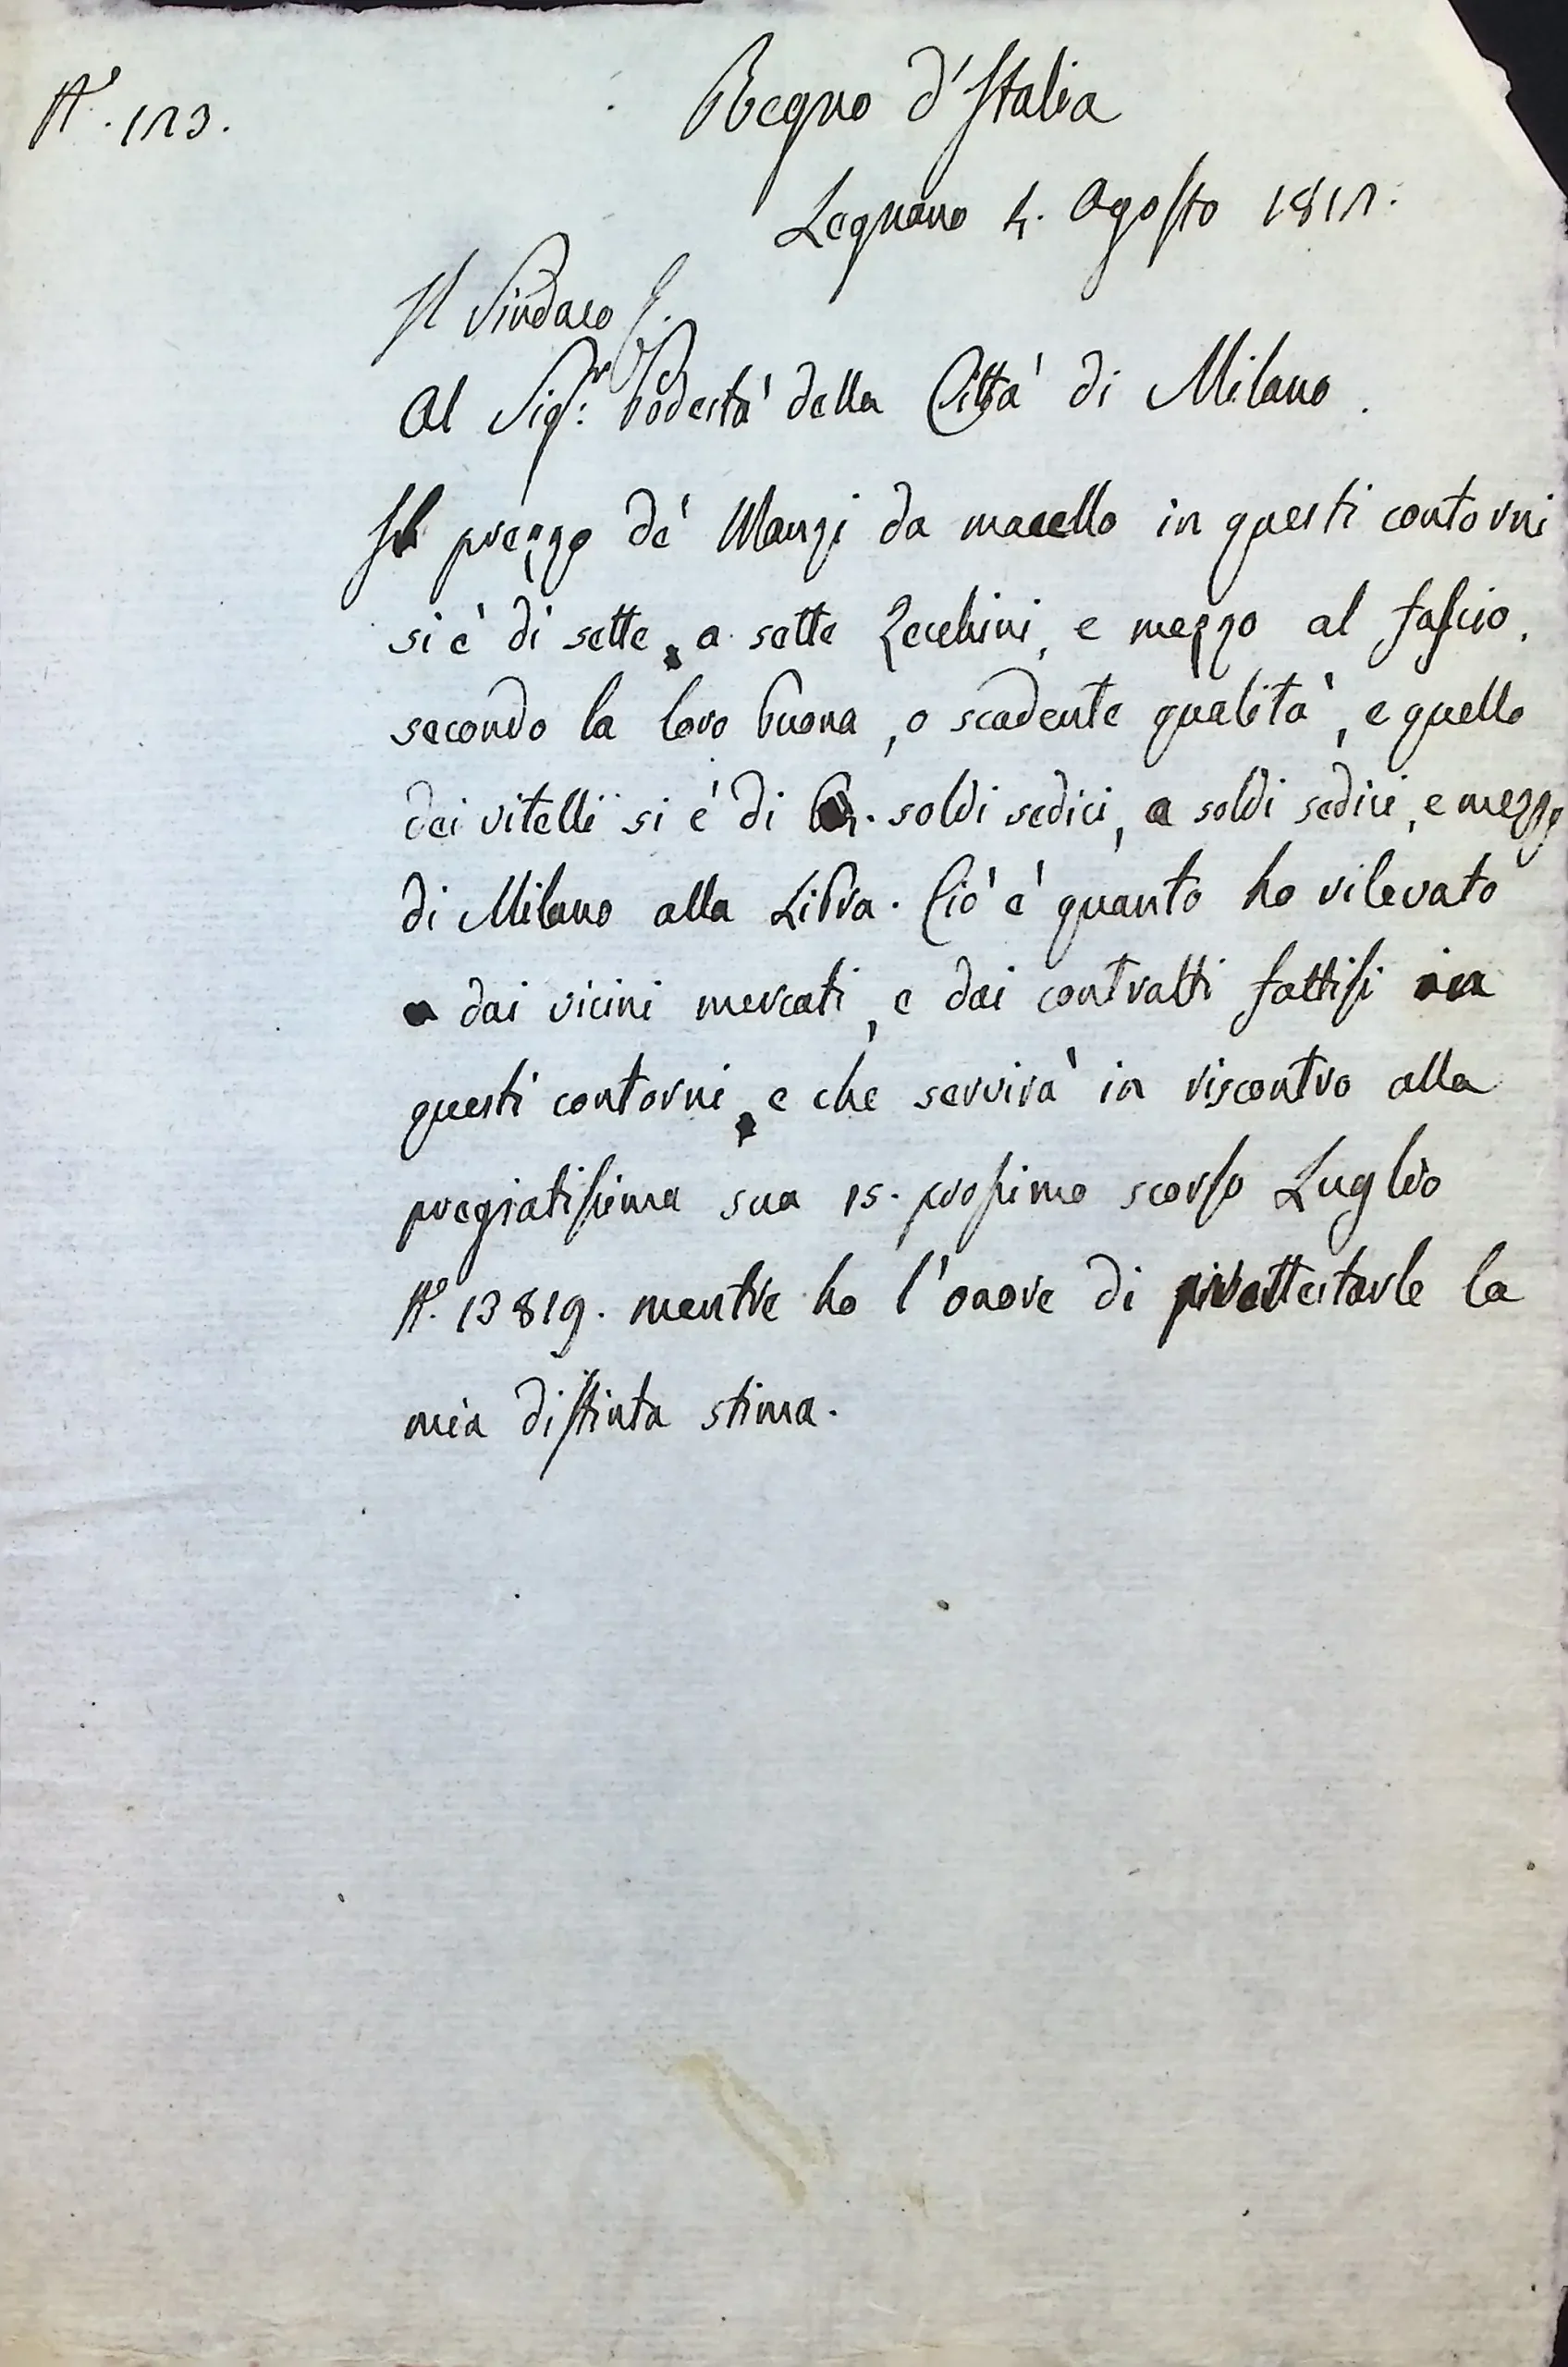 N.° 123.
Regno d'Italia
Legnano 4. Agosto 1812.
Il Sindaco
Al Sig.r Podestà della Città di Milano.
Il prezzo de' Manzi da macello in questi contorni
si è di sette, a sette Zecchini, e mezzo al fascio,
secondo la loro buona, o scadente qualità, e quello
dei vitelli si è di soldi sedici, a soldi sedici, e mezzo
di Milano alla Libra. Ciò è quanto ho rilevato
dai vicini mercati, e dai contratti fattisi in
questi contorni, e che servirà in riscontro alla
pregiatissima sua 15. prossimo scorso Luglio
N.° 13819. mentre ho l'onore di protestarle la
mia distinta stima.